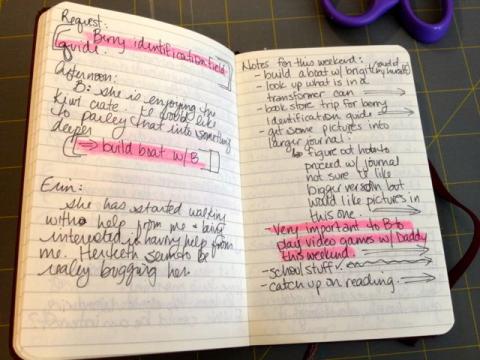 Request:
Berry identification field
guide.
Afternoon:
B: she is enjoying her
kiwi crate. I'd would like
to parley that into something
deeper
→ build boat w/ B
Erin:
she has started walking
with help from me + being
interested in having help from
me. Her teeth seem to be
really bugging her.
Notes for this weekend:
- build a boat w/ bright (by herself)
- look up what is in a
transformer can
- book store trip for berry
identification guide
- get some pictures into
larger journal:
↳ figure out how to
proceed w/ journal
not sure if like
bigger version but
would like pictures in
this one.
- very important to B to
play video games w/ Daddy
this weekend
- school stuff
- catch up on reading.